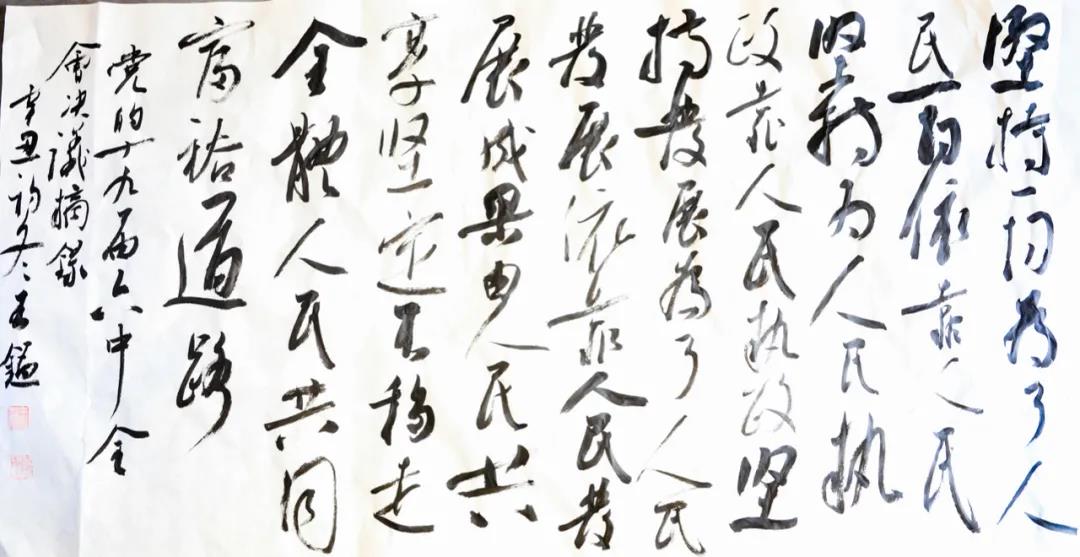 堅持一切為了人
民一切依靠人民
堅持为人民执
政靠人民执政坚
持發展為了人民
發展依靠人民發
展成果由人民共
享坚定不移走
全體人民共同
富裕道路
党的十九届六中全
會决議摘錄
辛丑初冬王